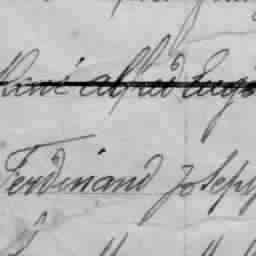 René alfred Eugè
Ferdinand Joseph